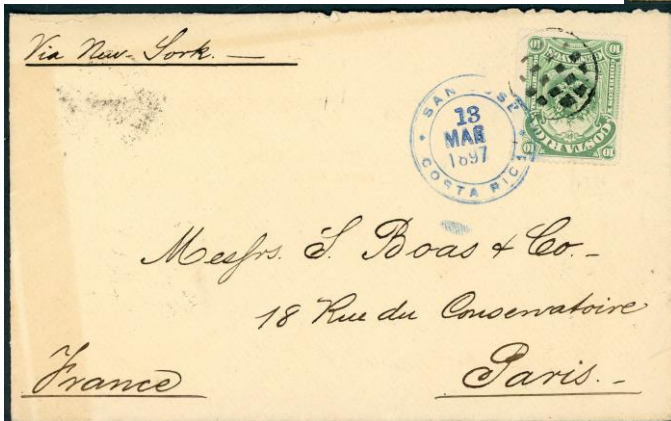 Via New-York.—
SAN JOSE
13
MAR
1897
COSTA RICA
10 10
COSTA RICA
10 10
Messrs. S. Boas & Co.-
18 Rue du Conservatoire
France
Paris.-